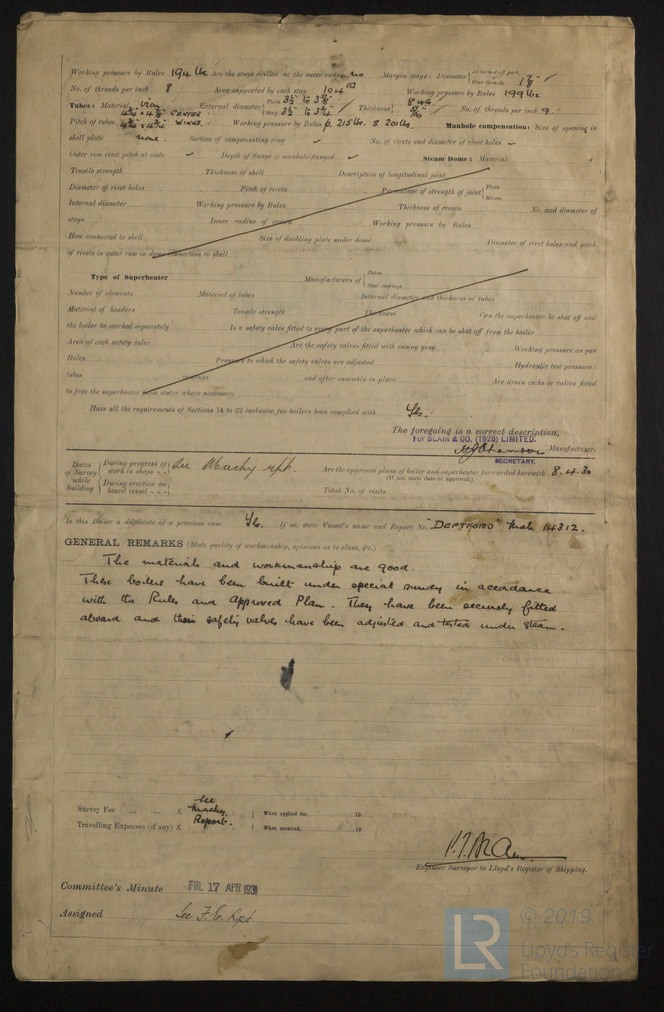 Working pressure by Rules 194 lbs Are the stays drilled at the outer ends no Margin stays: Diameter { At turned off part, or Over threads 1 7/8"
No. of threads per inch 8 Area supported by each stay 104 Working pressure by Rules 199 lbs.
Tubes: Material iron External diameter { Plain 3 1/2 Stay 3 1/2 Thickness { 8 WG 5/16 No. of threads per inch 9
Pitch of tubes Working pressure by Rules p. 215 lbs. s 201 lbs. Manhole compensation: Size of opening in
shell plate none. Section of compensating ring No. of rivets and diameter of rivet holes
Outer row rivet pitch at ends Depth of flange if manhole flanged Steam Dome: Material
Tensile strength Thickness of shell Description of longitudinal joint
Diameter of rivet holes Pitch of rivets Percentage of strength of joint { Plate Rivets
Internal diameter Working pressure by Rules Thickness of crown No. and diameter of
stays Inner radius of crown Working pressure by Rules
How connected to shell Size of doubling plate under dome Diameter of rivet holes and pitch
of rivets in outer row in dome connection to shell
Type of Superheater Manufacturers of { Tubes Steel castings
Number of elements Material of tubes Internal diameter and thickness of tubes
Material of headers Tensile strength Thickness Can the superheater be shut off and
the boiler be worked separately Is a safety valve fitted to every part of the superheater which can be shut off from the boiler
Area of each safety valve Are the safety valves fitted with easing gear Working pressure as per
Rules Pressure to which the safety valves are adjusted Hydraulic test pressure:
tubes castings and after assembly in place Are drain cocks or valves fitted
to free the superheater from water where necessary
Have all the requirements of Sections 14 to 22 inclusive for boilers been complied with Yes.
The foregoing is a correct description,
For BLAIR & CO. (1926) LIMITED.
Manufacturer.
SECRETARY.
Dates of Survey while building { During progress of work in shops - - See Machy rpt. Are the approved plans of boiler and superheater forwarded herewith 8.4.30
(If not state date of approval.)
During erection on board vessel - - - Total No. of visits
Is this Boiler a duplicate of a previous case Yes. If so, state Vessel's name and Report No. "DEPTFORD" Mch. 14312.
GENERAL REMARKS (State quality of workmanship, opinions as to class, &c.)
The materials and workmanship are good.
These boilers have been built under special survey in accordance
with the Rules and approved Plan. They have been securely fitted
aboard and their safety valves have been adjusted and tested under steam.
Survey Fee ... ... £ See Machy. Report. When applied for, 19
Travelling Expenses (if any) £ When received, 19
Engineer Surveyor to Lloyd's Register of Shipping.
Committee's Minute FRI. 17 APR 1931
Assigned See F.E. Rpt
LR © 2019
Lloyd's Register
Foundation